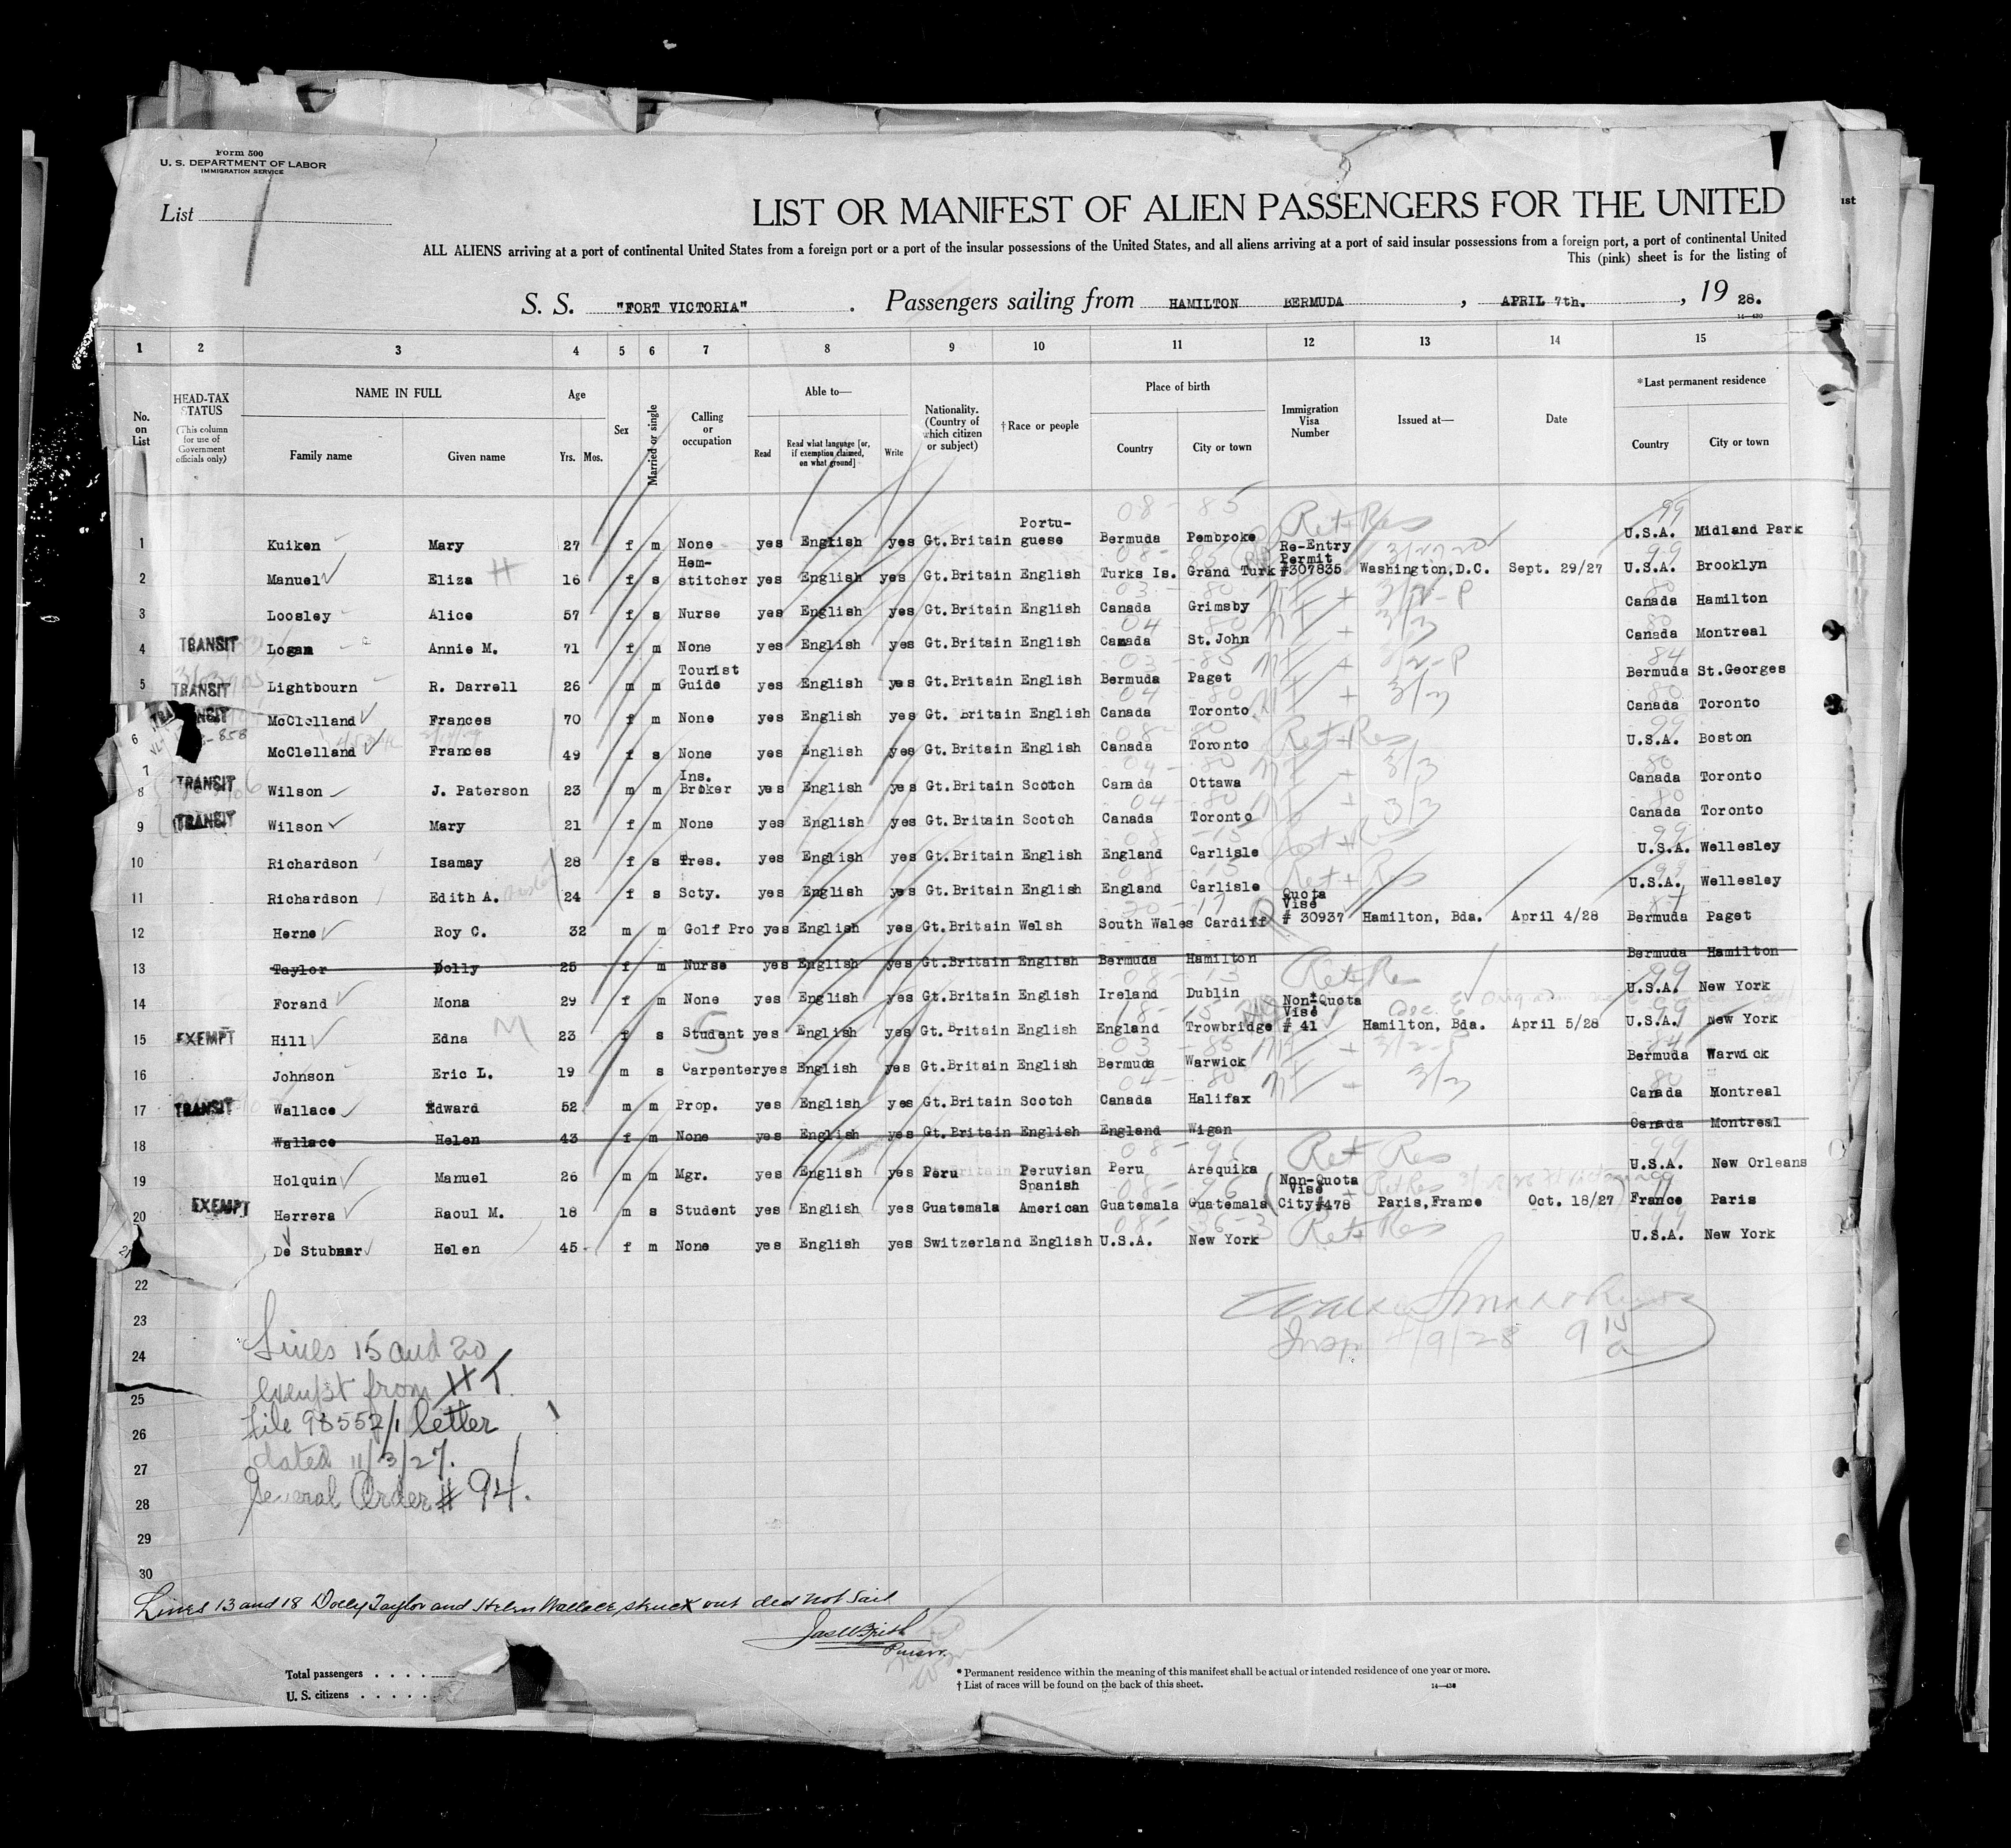 Form 500
U. S. DEPARTMENT OF LABOR
IMMIGRATION SERVICE
List
LIST OR MANIFEST OF ALIEN PASSENGERS FOR THE UNITED
ALL ALIENS arriving at a port of continental United States from a foreign port or a port of the insular possessions of the United States, and all aliens arriving at a port of said insular possessions from a foreign port, a port of continental United
This (pink) sheet is for the listing of
S. S. "FORT VICTORIA". Passengers sailing from HAMILTON BERMUDA, APRIL 7th., 19 28.
14—430
1 2 3 4 5 6 7 8 9 10 11 12 13 14 15
No. on List
HEAD-TAX STATUS (This column for use of Government officials only)
NAME IN FULL Family name Given name
Age Yrs. Mos.
Sex
Married or single
Calling or occupation
Able to— Read Read what language [or, if exemption claimed, on what ground] Write
Nationality. (Country of which citizen or subject)
†Race or people
Place of birth Country City or town
Immigration Visa Number
Issued at—
Date
*Last permanent residence Country City or town
1 Kuiken Mary 27 f m None yes English yes Gt.Britain Portu-guese Bermuda Pembroke 08-85 Ret+Res 99 U.S.A. Midland Park
2 Manuel Eliza H 16 f s Hem-stitcher yes English yes Gt.Britain English Turks Is. Grand Turk Re-Entry Permit #307835 Washington,D.C. Sept. 29/27 99 U.S.A. Brooklyn
3 Loosley Alice 57 f s Nurse yes English yes Gt.Britain English Canada Grimsby 03-80 80 Canada Hamilton
4 TRANSIT Logan Annie M. 71 f m None yes English yes Gt.Britain English Canada St.John 04-80 3/3 80 Canada Montreal
5 TRANSIT Lightbourn R. Darrell 26 m m Tourist Guide yes English yes Gt.Britain English Bermuda Paget 03-85 84 Bermuda St.Georges
6 McClelland Frances 70 f m None yes English yes Gt. Britain English Canada Toronto 04-80 3/3 80 Canada Toronto
7 McClelland Frances 49 f s None yes English yes Gt.Britain English Canada Toronto 08-80 Ret+Res 99 U.S.A. Boston
8 TRANSIT Wilson J. Paterson 23 m m Ins. Broker yes English yes Gt.Britain Scotch Canada Ottawa 04-80 3/3 80 Canada Toronto
9 TRANSIT Wilson Mary 21 f m None yes English yes Gt.Britain Scotch Canada Toronto 04-80 3/3 80 Canada Toronto
10 Richardson Isamay 28 f s Tres. yes English yes Gt.Britain English England Carlisle 08-15 Ret+Res 99 U.S.A. Wellesley
11 Richardson Edith A. 24 f s Scty. yes English yes Gt.Britain English England Carlisle 08-15 Ret+Res 99 U.S.A. Wellesley
12 Herne Roy C. 32 m m Golf Pro yes English yes Gt.Britain Welsh South Wales Cardiff Quota Vise # 30937 Hamilton, Bda. April 4/28 Bermuda Paget
13 Taylor Dolly 25 f m Nurse yes English yes Gt.Britain English Bermuda Hamilton Bermuda Hamilton
14 Forand Mona 29 f m None yes English yes Gt.Britain English Ireland Dublin 08-13 Ret+Res 99 U.S.A. New York
15 EXEMPT Hill Edna M 23 f s Student S yes English yes Gt.Britain English England Trowbridge Non-Quota Vise # 41 Hamilton, Bda. April 5/28 99 U.S.A. New York
16 Johnson Eric L. 19 m s Carpenter yes English yes Gt.Britain English Bermuda Warwick 03-85 84 Bermuda Warwick
17 TRANSIT Wallace Edward 52 m m Prop. yes English yes Gt.Britain Scotch Canada Halifax 04-80 3/3 80 Canada Montreal
18 Wallace Helen 43 f m None yes English yes Gt.Britain English England Wigan Canada Montreal
19 Holquin Manuel 26 m m Mgr. yes English yes Peru Peruvian Spanish Peru Arequika 08-96 Ret Res 99 U.S.A. New Orleans
20 EXEMPT Herrera Raoul M. 18 m s Student yes English yes Guatemala American Guatemala Guatemala City Non-Quota Vise #478 Paris,France Oct. 18/27 France Paris
21 De Stubnar Helen 45 f m None yes English yes Switzerland English U.S.A. New York Ret+Res U.S.A. New York
22
23
24
25
26
27
28
29
30
Insp 4/9/28 9 15 a
Lines 15 and 20
exempt from HT.
file 98552/1 letter
dated 11/3/27.
General Order # 94.
Lines 13 and 18 Dolly Taylor and Helen Wallace struck out did not sail
Purser.
Total passengers
U. S. citizens
* Permanent residence within the meaning of this manifest shall be actual or intended residence of one year or more.
† List of races will be found on the back of this sheet.
14—430